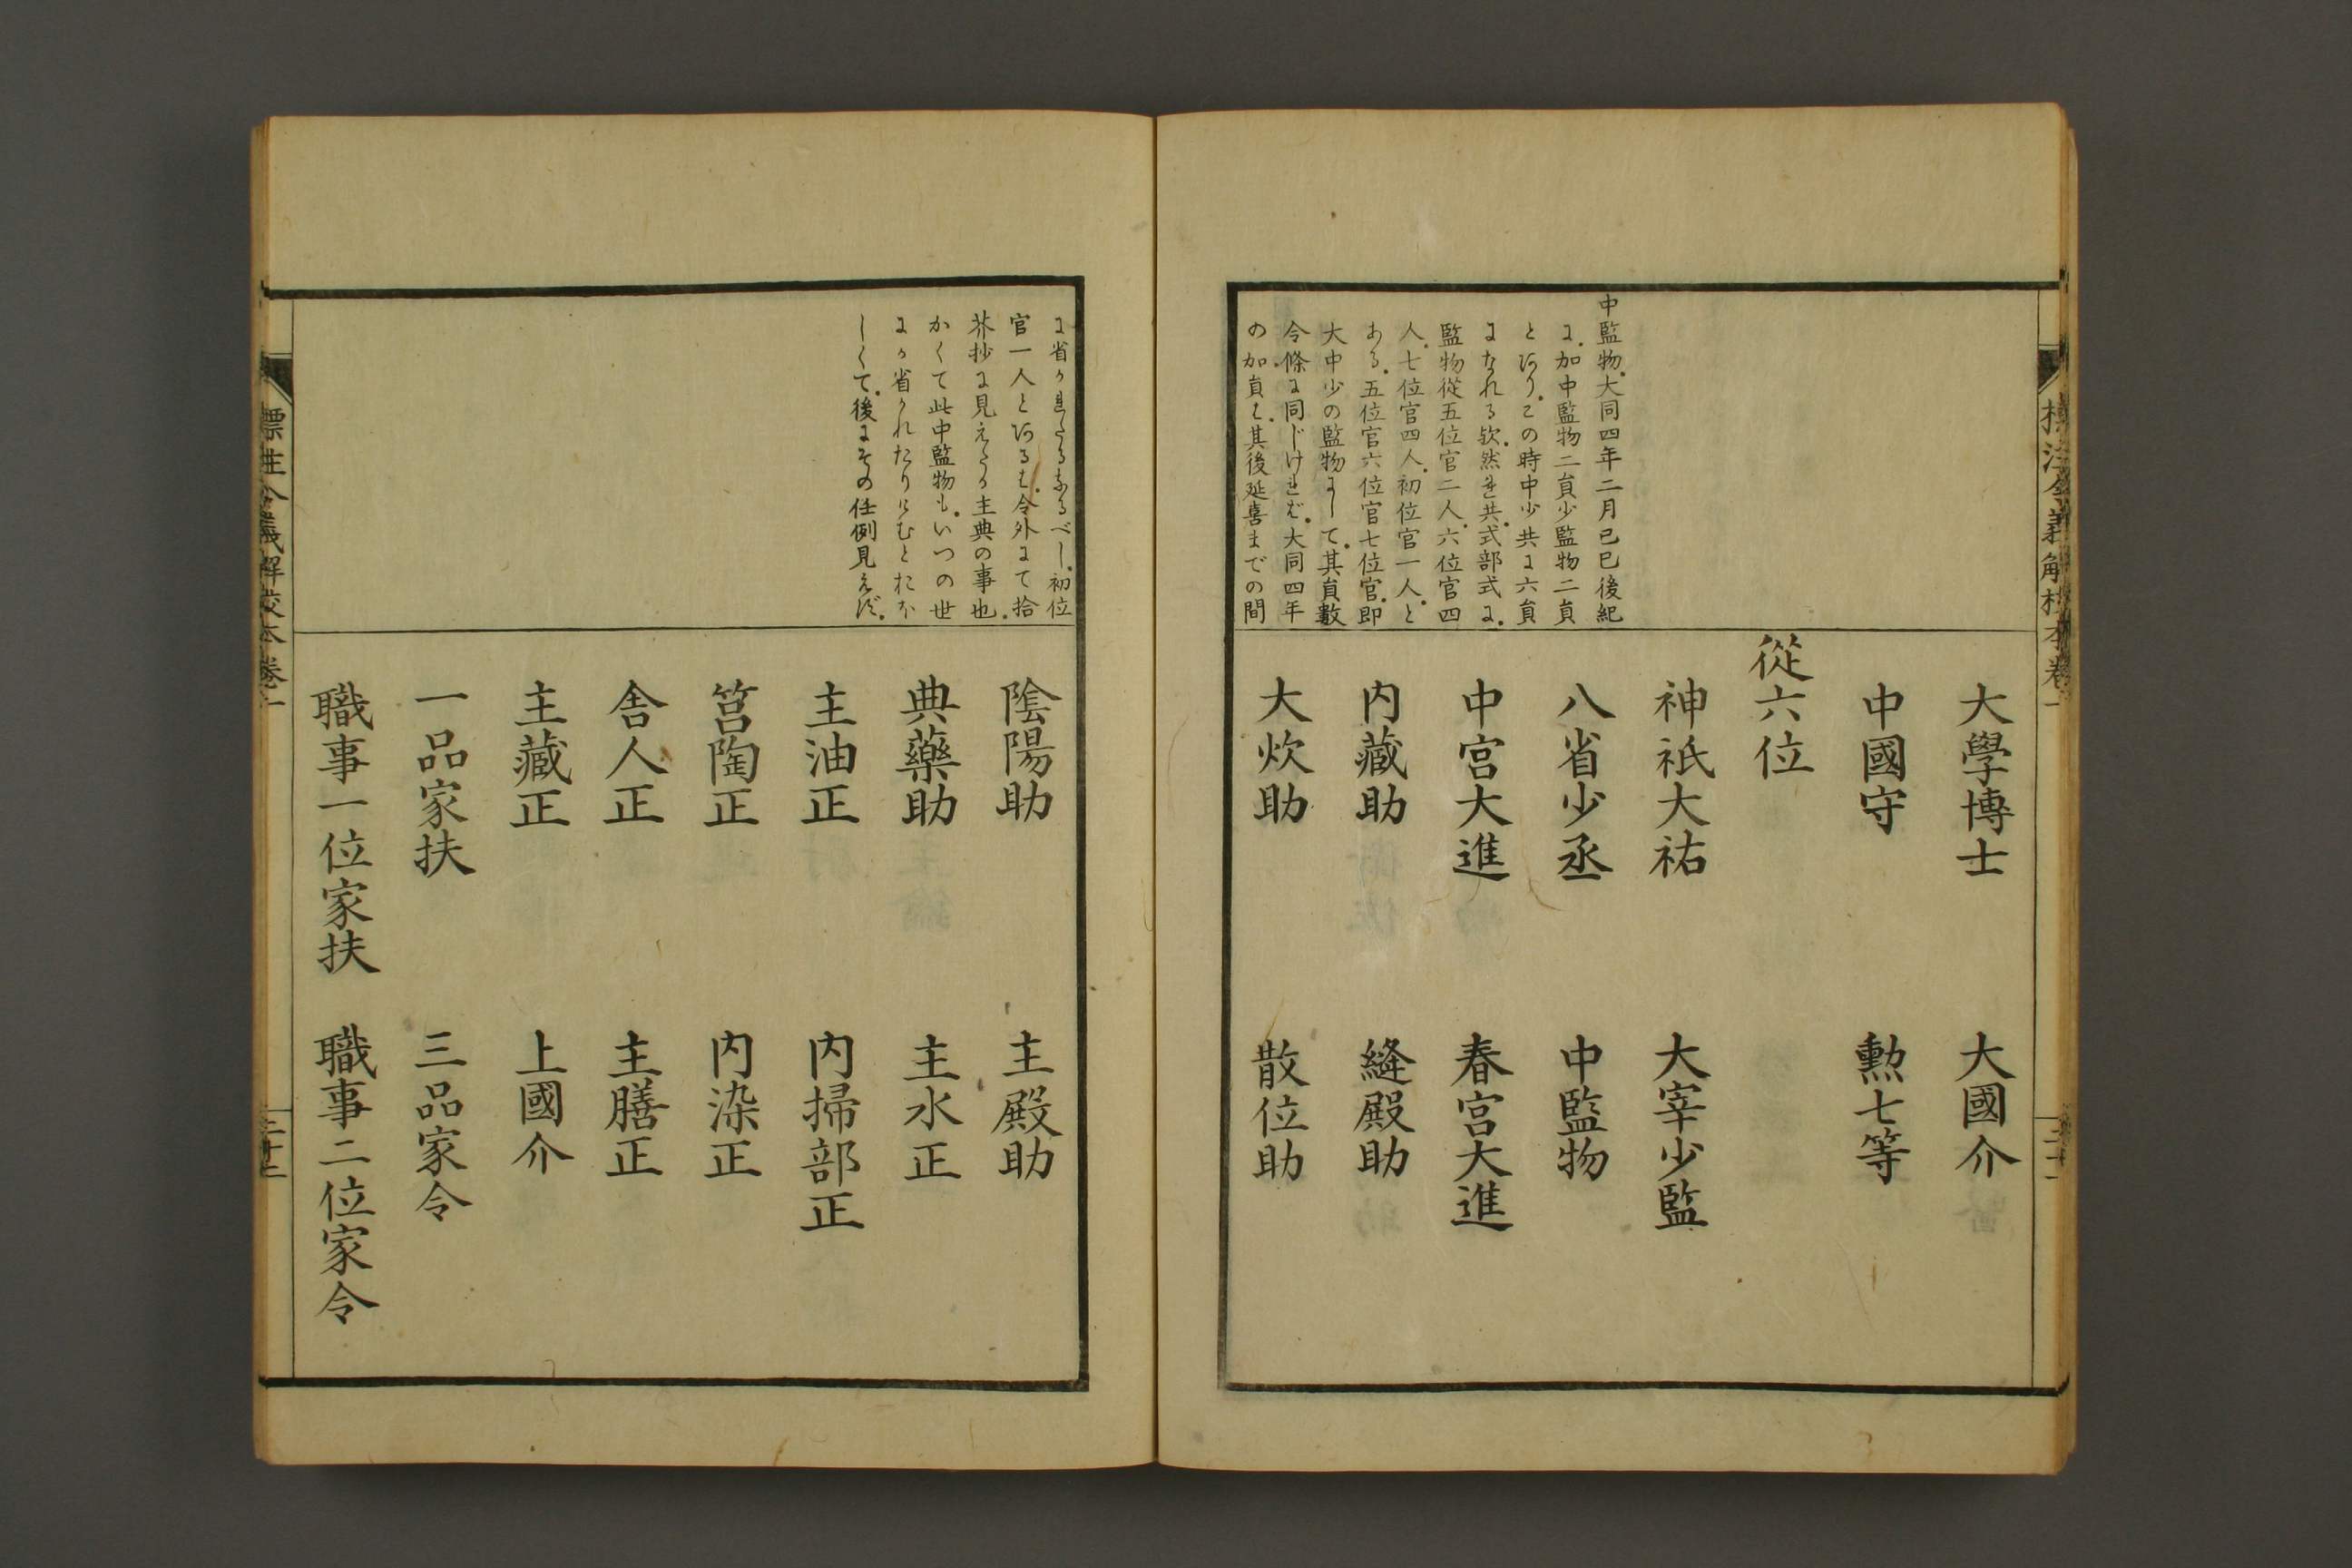 標注令義解校本卷一
中監物。大同四年二月己巳後紀
に。加中監物二員少監物二員
とあり。この時中少共に六員
になれる欤。然れ共。式部式に。
監物從五位官二人。六位官四
人。七位官四人。初位官一人。と
ある。五位官六位官七位官。即
大中少の監物にして。其員數
令條に同じければ。大同四年
の加員は。其後延喜までの間
大學博士 大國介
中國守 勲七等
從六位
神祇大祐 大宰少監
八省少丞 中監物
中宮大進 春宮大進
内藏助 縫殿助
大炊助 散位助
に省かれたるなるべし。初位
官一人とあるは。令外にて拾
芥抄に見えたる主典の事也。
かくて此中監物も。いつの世
にか省かれたりけむとおぼ
しくて。後にその任例見えず。
陰陽助 主殿助
典藥助 主水正
主油正 内掃部正
筥陶正 内染正
舎人正 主膳正
主藏正 上國介
一品家扶 三品家令
職事一位家扶 職事二位家令
標注令義解校本卷一